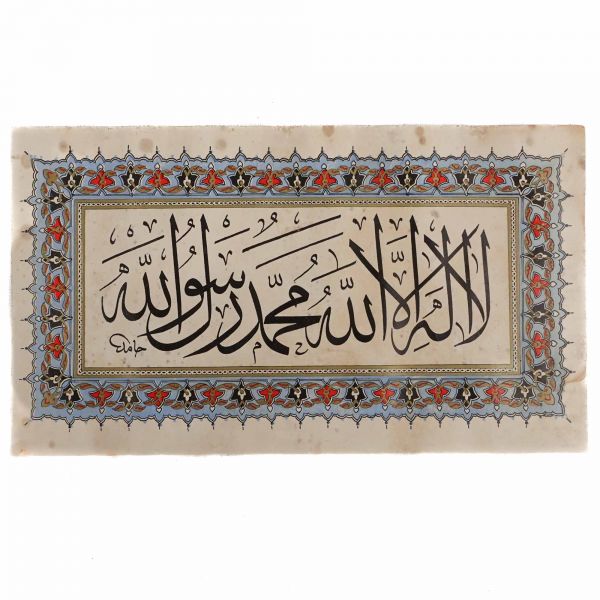 لا اله الا الله محمد رسول الله
حامد